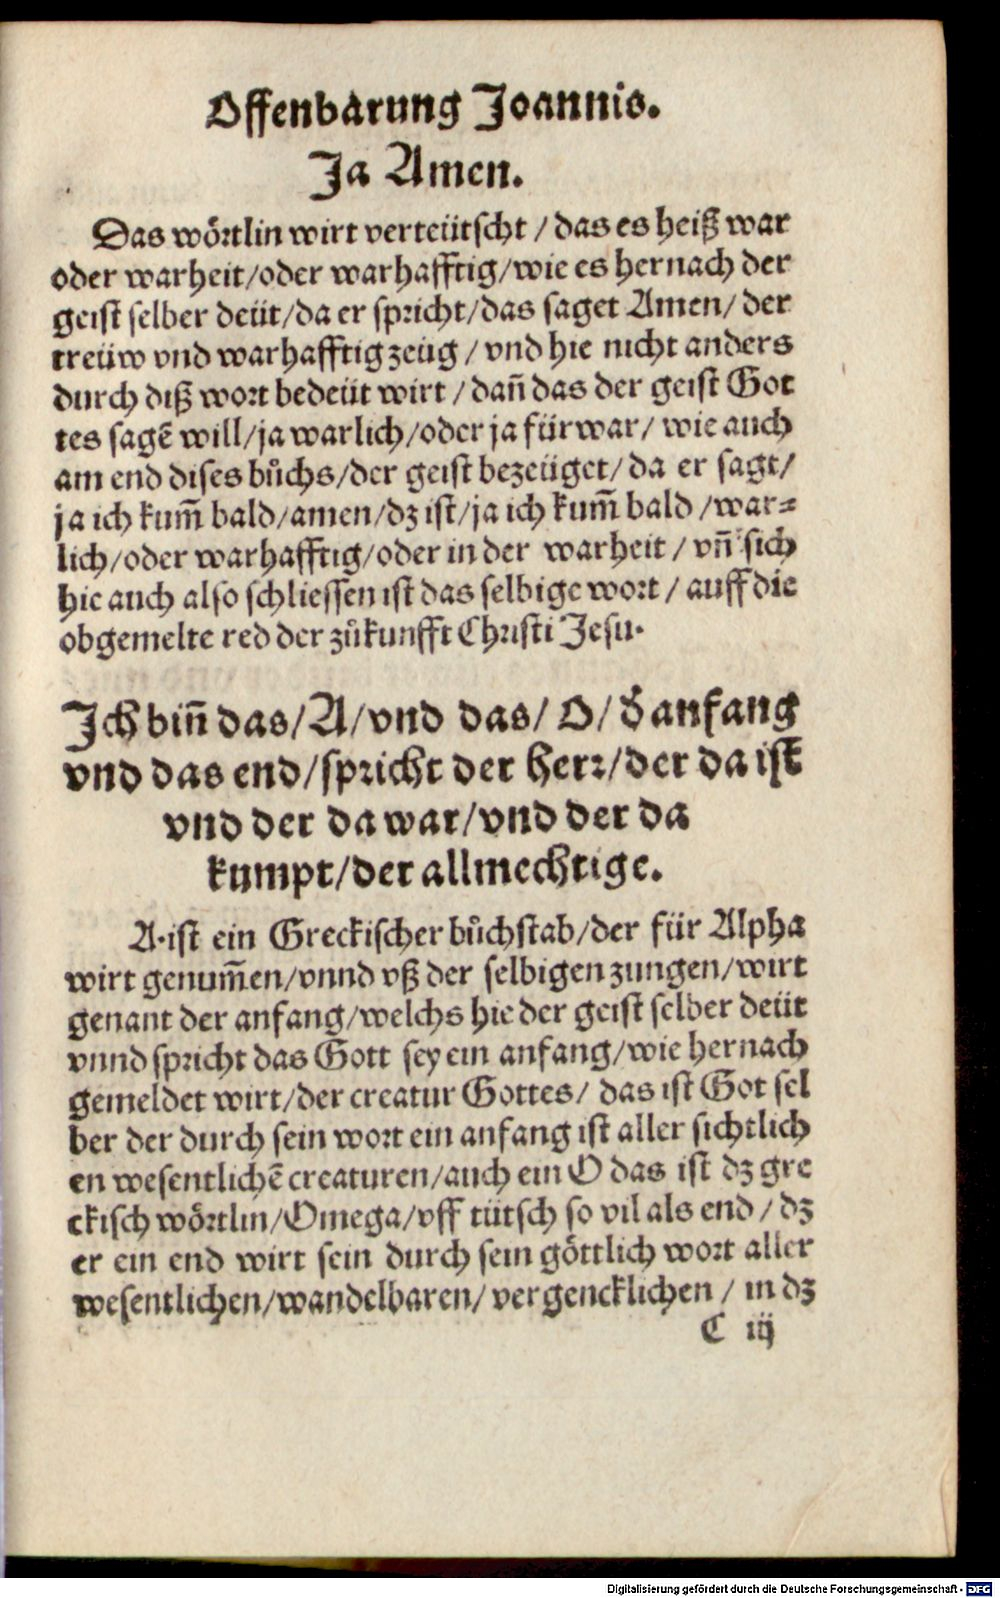 Offenbarung Joannis.
Ja Amen.
Das wörtlin wirt verteütscht / das es heiß war
oder warheit/oder warhafftig/wie es hernach der
geist selber deüt/da er spricht/das saget Amen/ der
treüw vnd warhafftig zeüg / vnd hie nicht anders
durch diß wort bedeüt wirt / dañ das der geist Got
tes sagẽ will/ja warlich/oder ja fürwar/ wie auch
am end dises bůchs/der geist bezeüget/ da er sagt/
ja ich kum̃ bald/amen/dz ist/ja ich kum̃ bald /war⸗
lich/oder warhafftig/oder in der warheit / vñ sich
hie auch also schliessen ist das selbige wort / auff die
obgemelte red der zůkunfft Christi Jesu.
Ich biñ das/A/vnd das/ O/ d̕ anfang
vnd das end/spricht der Herr/der da ist
vnd der da war/vnd der da
kumpt/der allmechtige.
A.ist ein Greckischer bůchstab/der für Alpha
wirt genum̃en/vnnd vß der selbigen zungen/wirt
genant der anfang/welchs hie der geist selber deüt
vnnd spricht das Gott sey ein anfang/wie hernach
gemeldet wirt/der creatur Gottes/ das ist Got sel
ber der durch sein wort ein anfang ist aller sichtlich
en wesentlichẽ creaturen/auch ein O das ist dz gre
ckisch wörtlin/Omega/vff tütsch so vil als end / dz
er ein end wirt sein durch sein göttlich wort aller
wesentlichen/wandelbaren/ vergencklichen / in dz
C iij
Digitalisierung gefördert durch die Deutsche Forschungsgemeinschaft - DFG